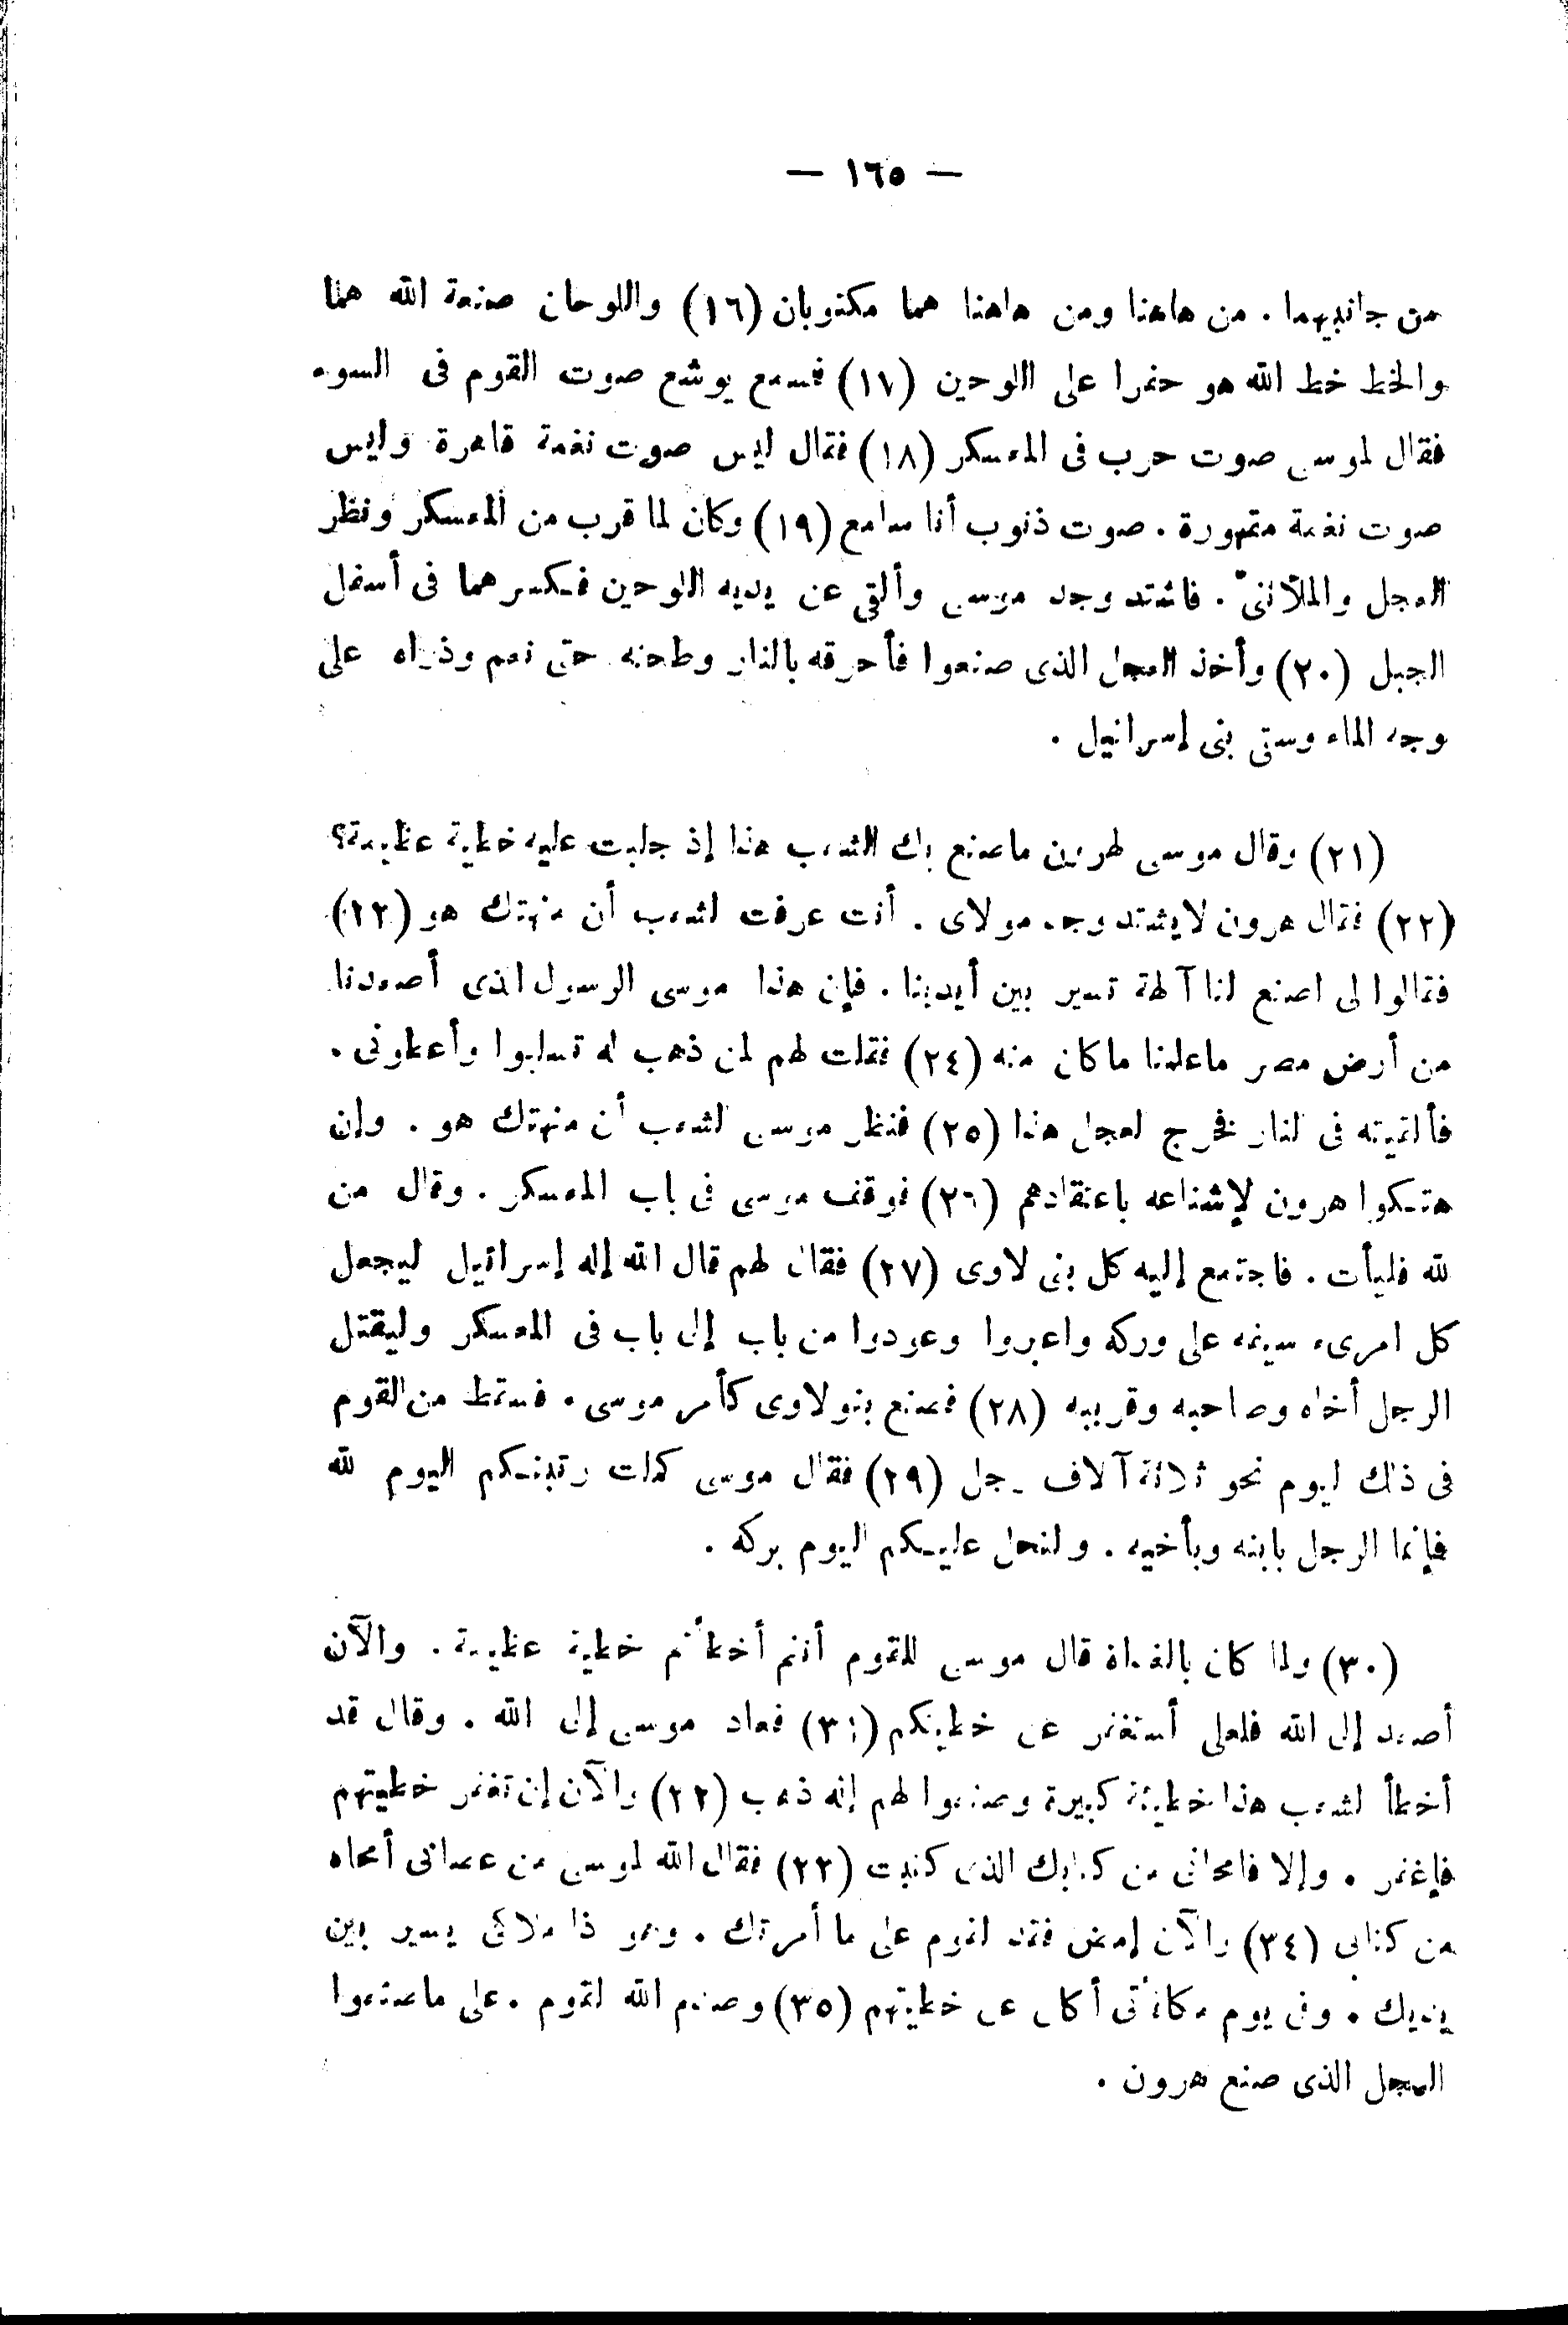 — ١٦٥ —
من جانبيهما . من هاهنا ومن هاهنا هما مكتوبان (١٦) واللوحان صنعة الله هما
والخط خط الله هو حفرا على اللوحين (١٧) فسمع يوشع صوت القوم فى السوء
فقال لموسى صوت حرب فى المعسكر (١٨) فقال ليس صوت نغمة قاهرة وليس
صوت نغمة مقهورة . صوت ذنوب أنا سامع (١٩) وكان لما قرب من المعسكر ونظر
العجل والملاّنىّ . فاشتد وجد موسى وألقى عن يديه اللوحين فكسرهما فى أسفل
الجبل (٢٠) وأخذ العجل الذى صنعوا فأحرقه بالنار وطحنه حتى نعم وذراه على
وجه الماء وسقى بنى إسرائيل .
(٢١) وقال موسى لهرون ماصنع بك الشعب هذا إذ جلبت عليه خطية عظيمة؟
(٢٢) فقال هرون لايشتد وجد مولاى . أنت عرفت لشعب أن منهتك هو (٢٣)
فقالوا لى اصنع لنا آلهة تسير بين أيدينا . فإن هذا موسى الرسول الذى أصعدنا
من أرض مصر ماعلمنا ماكان منه (٢٤) فقلت لهم لمن ذهب له تسلبوا وأعطونى .
فألقيته فى لنار فخرج لعجل هذا (٢٥) فنظر موسى لشعب أن منهتك هو . وإن
هتكوا هرون لإشناعه باعتقادهم (٢٦) فوقف موسى فى باب المعسكر . وقال من
لله فليأت . فاجتمع إليه كل بنى لاوى (٢٧) فقال لهم قال الله إله إسرائيل ليجعل
كل امرىء سيفه على وركه واعبروا وعودوا من باب إلى باب فى المعسكر وليقتل
الرجل أخاه وصاحبه وقريبه (٢٨) فصنع بنو لاوى كأمر موسى . فسقط من القوم
فى ذلك ليوم نحو ثلاثة آلاف رجل (٢٩) فقال موسى كملت رتبتكم اليوم لله
فإنما الرجل بابنه وبأخيه . ولنحل عليكم اليوم بركه .
(٣٠) ولما كان بالغداة قال موسى للقوم أنتم أخطأتم خطية عظيمة . والآن
أصعد إلى الله فلعلى أستغفر عن خطيتكم (٣١) فعاد موسى إلى الله . وقال قد
أخطأ لشعب هذا خطيئة كبيرة وصنعوا لهم إله ذهب (٣٢) والآن إن تغفر خطيتهم
فإغفر . وإلا فامحانى من كتابك الذى كتبت (٣٣) فقال الله لموسى من عصانى أمحاه
من كتابى (٣٤) والآن إمض فقد لقوم على ما أمرتك . وهو ذا ملاكى يسير بين
يديك . وفى يوم مكافأتى أكافى عن خطيتهم (٣٥) وصدم الله لقوم . على ماصنعوا
العجل الذى صنع هرون .